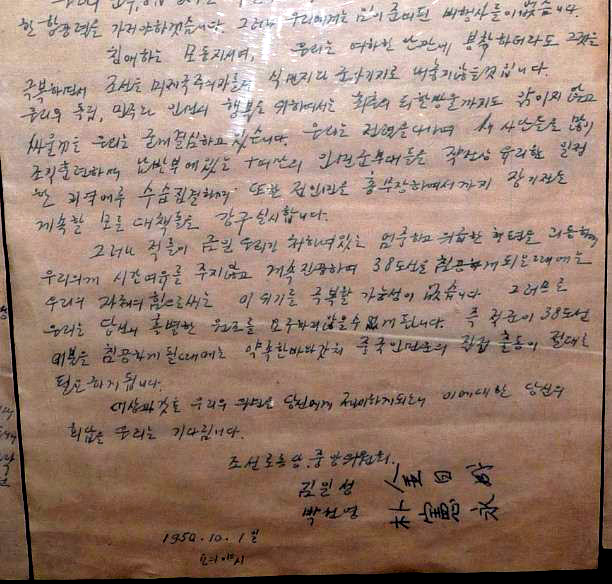 한 항공력을 가져야하겠습니다. 그러나 우리에게는 이미 준비된 비행사들이 없습니다.
친애하는 모동지시여, 우리는 여하한 난관에 봉착하더라도 그것을
극복하면서 조선을 미제국주의자들의 식민지와 군사기지로 내주지않을것입니다.
우리의 독립, 민주와 인민의 행복을 위하여서는 최후의 피한방울까지도 앗기지 않고
싸울것을 우리는 굳게결심하고있습니다. 우리는 전력을다하여 새 사단들을 많이
조직훈련하며 남반부에있는 十여만의 인민군부대들을 작전상 유리한 일정
한 지역에로 수습집결하며 또한 전인민을 총무장하여서까지 장기전을
계속할 모든 대책들을 강구실시합니다.
그러나 적들이 금일 우리가 처하여있는 엄중하고 위급한 형편을 리용하여
우리에게 시간여유를 주지않고 계속진공하여 38도선을 침공하게 되는때에는
우리의 자체의 힘으로써는 이 위기를 극복할 가능성이 없습니다 그러므로
우리는 당신의 특별한 원조를 요구하지않을수없게됩니다. 즉 적군이 38도선
이북을 침공하게될때에는 약속한바와같이 중국인민군의 직접 출동이 절대로
필요하게됩니다.
이상과같은 우리의 의견을 당신에게 제의하게되오니 이에대한 당신의
회답을 우리는 기다립니다.
조선로동당 중앙위원회.
김일성 金日成
박헌영 朴憲永
1950.10.1일
평양시